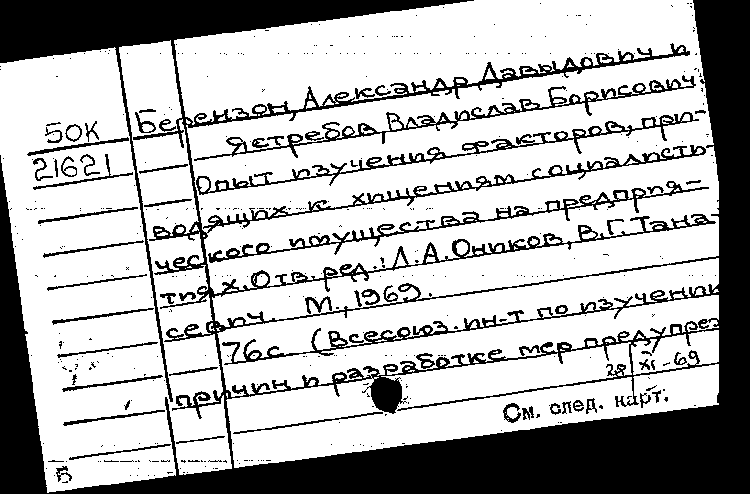 Берензон, Александр Давыдович и
50К
Ястребов, Владислав Борисович.
21621
Опыт изучения факторов, при-
водящих к хищениям социалисти-
ческого имущества на предприя-
тиях. Отв. ред.: Л.А. Оников, В.Г. Тана-
севич. М., 1969.
76с (Всесоюз. ин-т по изучению
причин и разработке мер предупрез
28/XI-69
См. след. карт.
Б